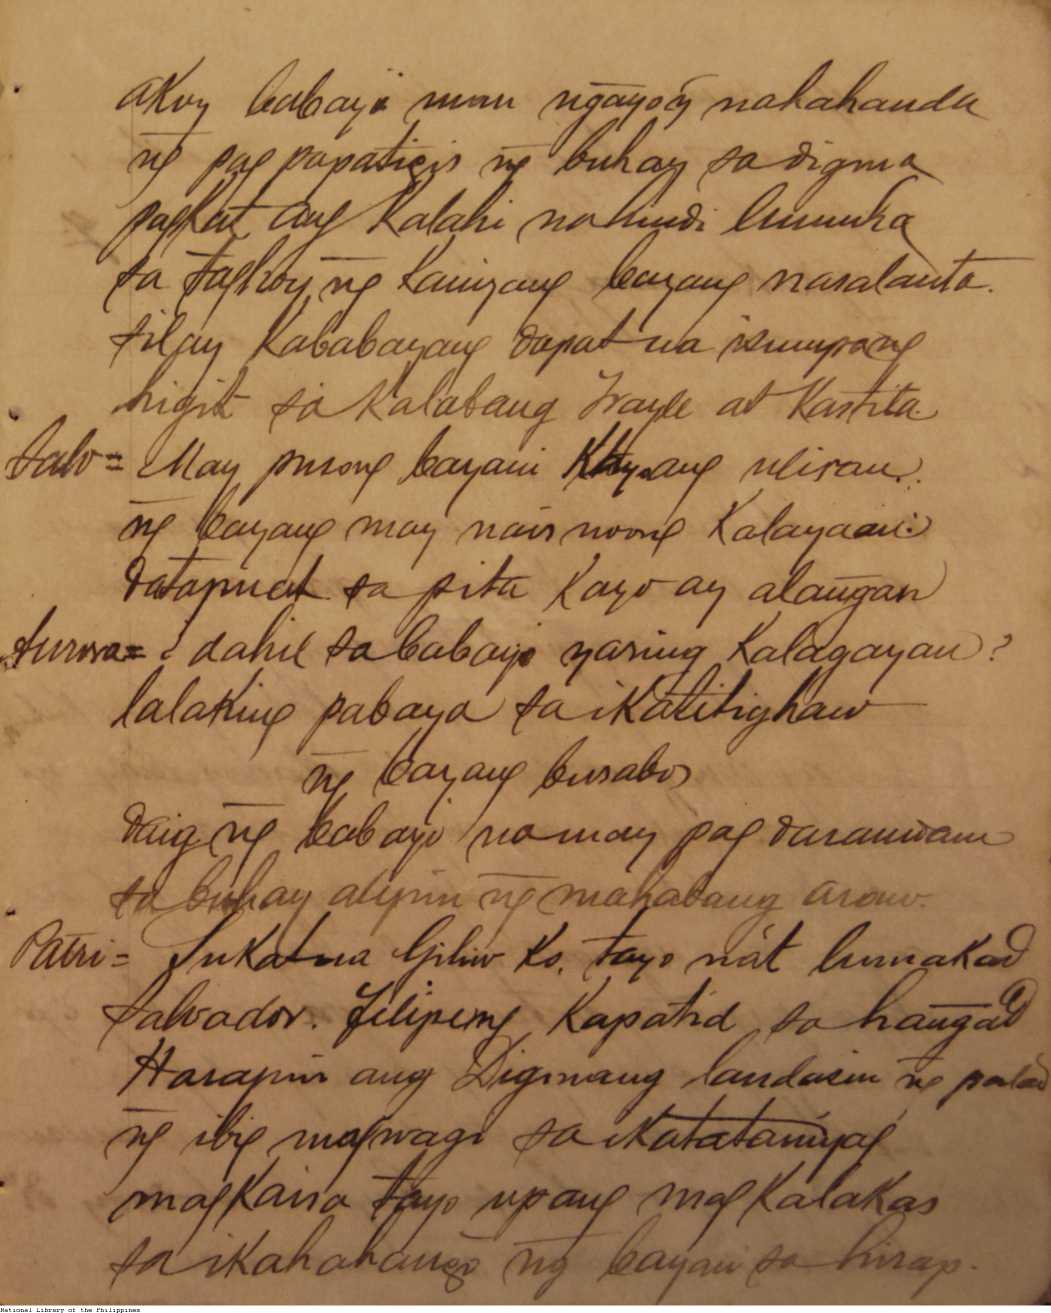 akoy babayi man ngayo'y nakahanda
ng̃ pag papatigis ng̃ buhay sa digma
pagkat ang Kalahi na hindi lumuha
sa taghoy ng̃ Kaniyang bayang nasalanta.
silay Kababayang dapat na isumpang
higit sa Kalabang Frayle at Kastila.
Salv = May pusong bayani Kayang uliran.
ng̃ bayang may nais noong Kalayaan:
datapuat sa pita Kayo ay alang̃an
Aurora = ¿ dahil sa babayi yaring Kalagayan?
lalaking pabaya sa iKatitighaw
ng̃ bayang busabos
daig ng̃ babayi na may pag daramdam
sa buhay alipin ng̃ mahabang araw.
Patri = Sukat na Giliw Ko. tayo na't lumakad
Salvador. Filipeng Kapatid sa hang̃ad
Harapin ang Digmang landasin ng̃ palad
ng̃ ibig magwagi sa ikatatanyag
magKaisa tayo upang magKalaKas
sa iKahahang̃o ng̃ bayan sa hirap.
National Library of the Philippines